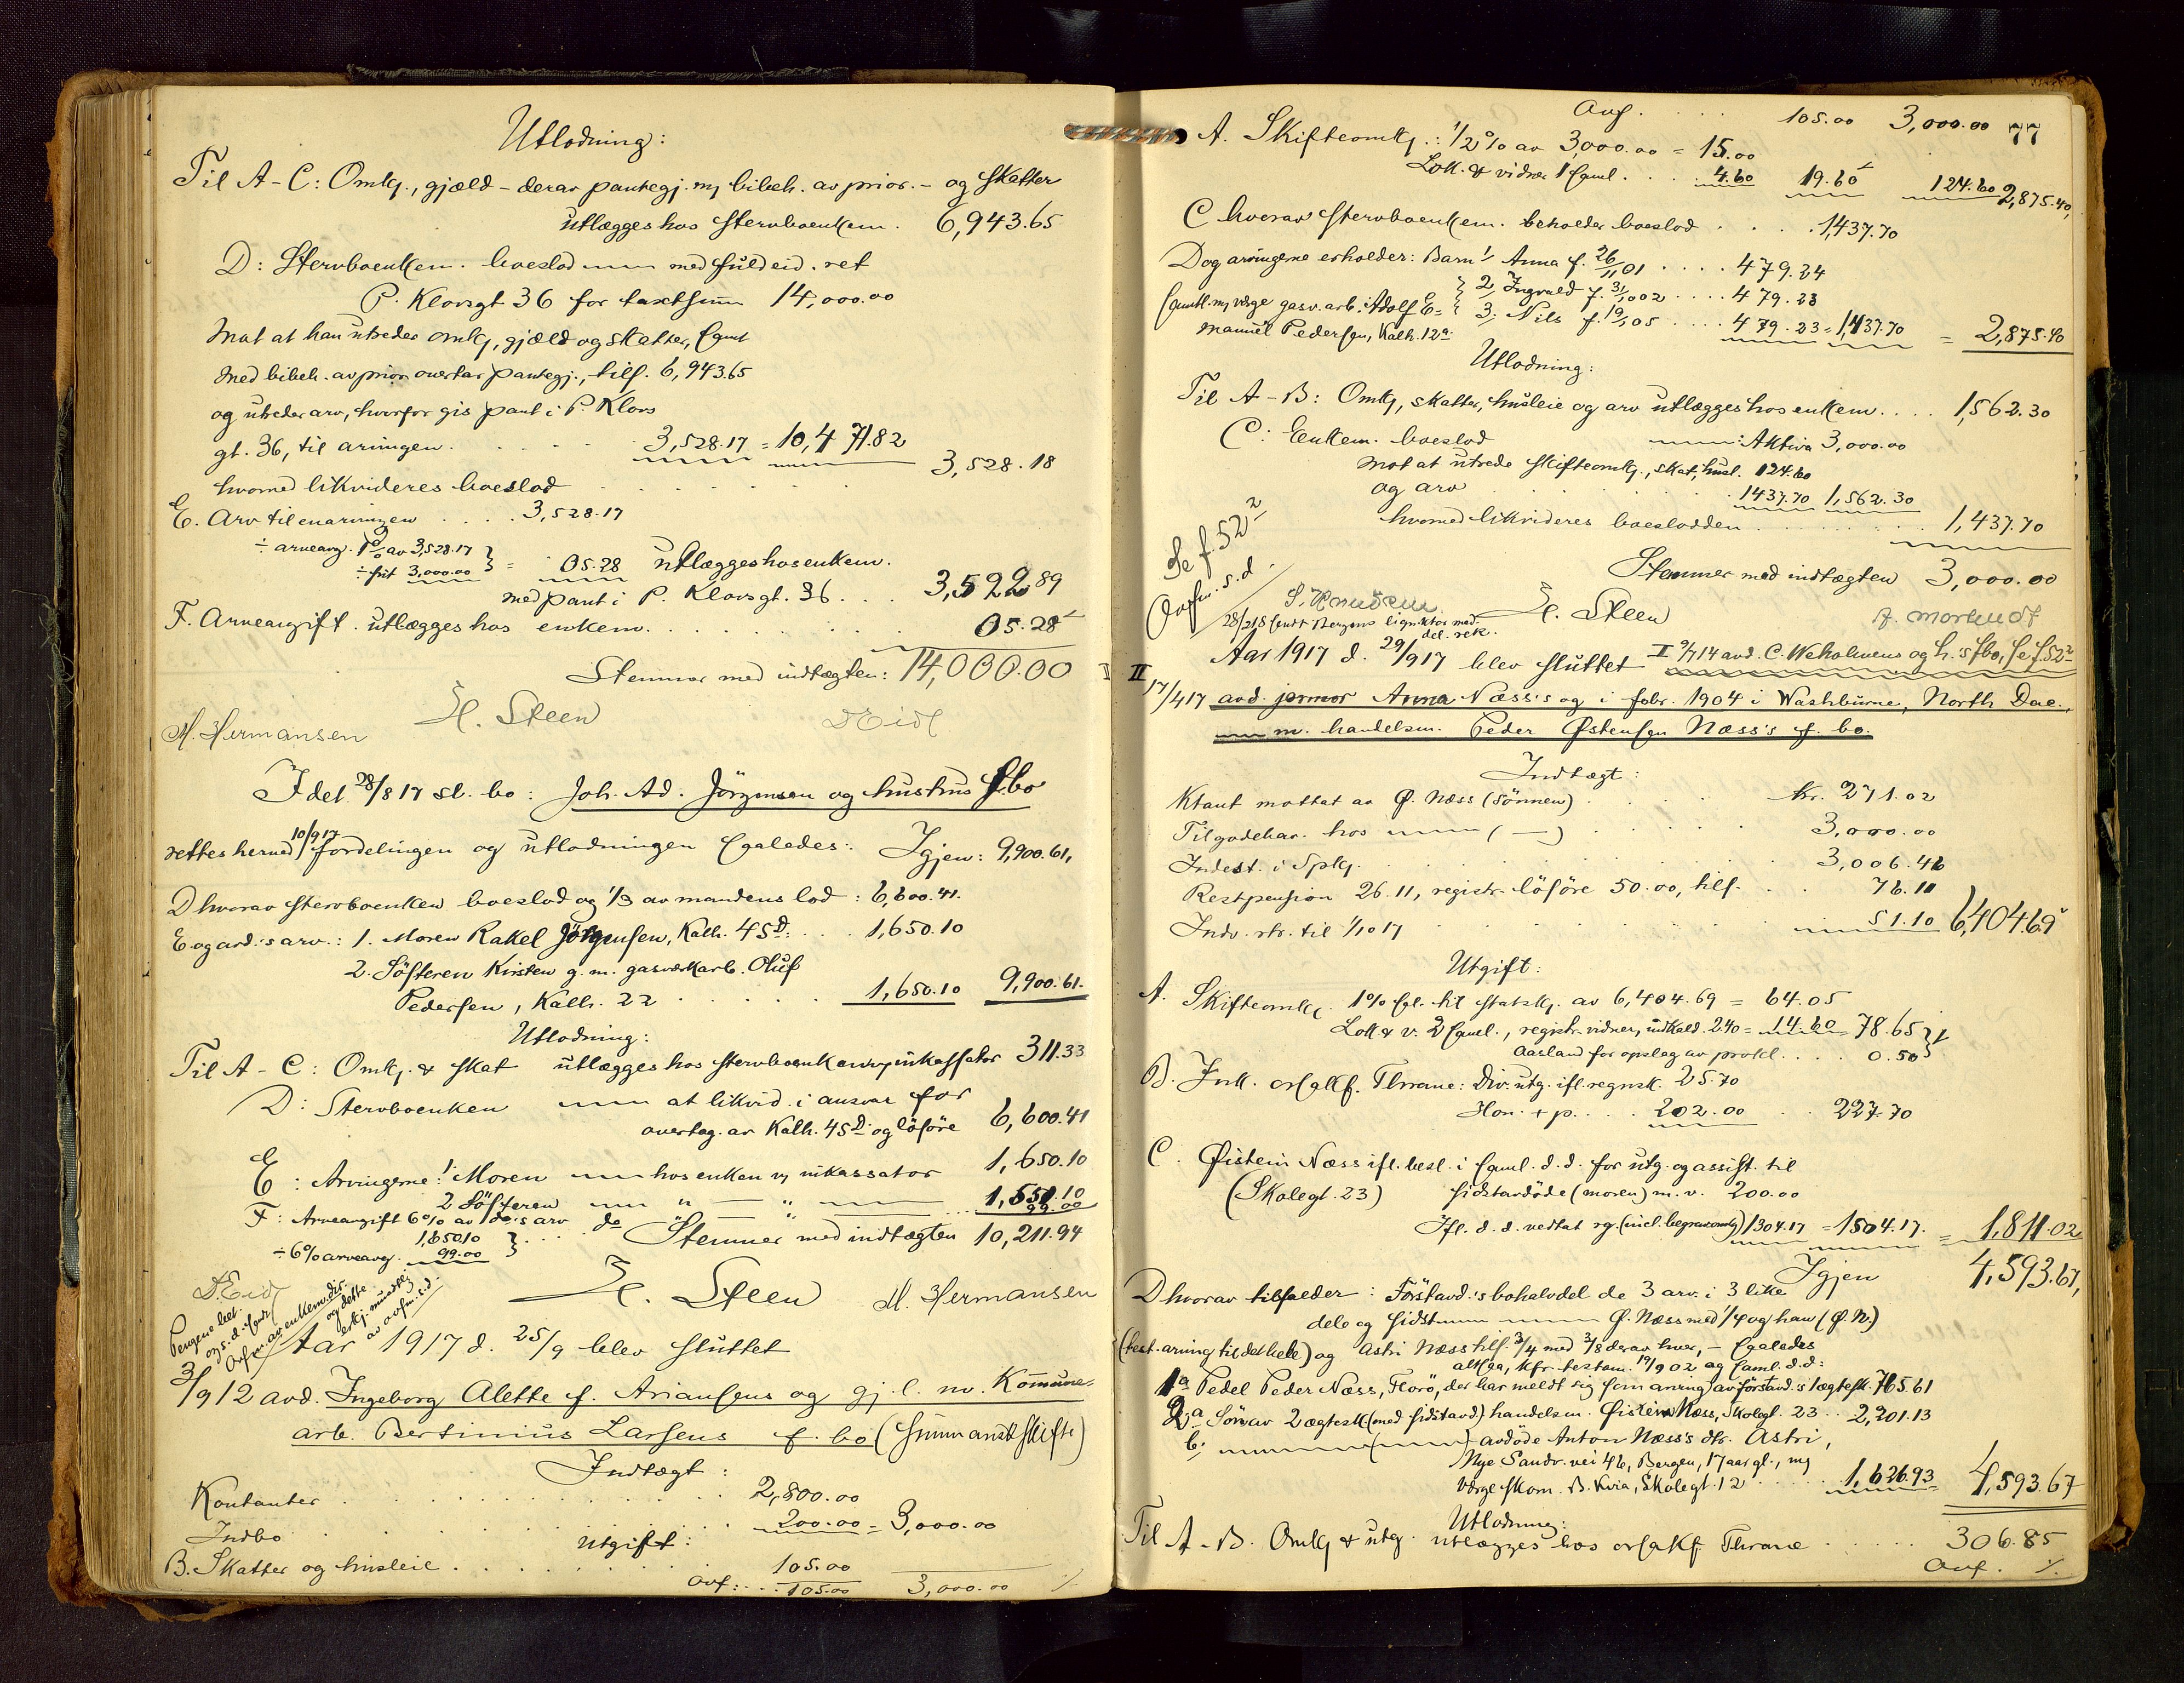 Utlodning:
Til A-C: Omkg., gjæld - derav pantegj. m/ bibeh. av prior. - og skatter
utlægges hos stervboenkem. 6,943.65
D: Stervboenkem. boeslod med fuld eid. ret
P. Klowsgt 36 for taxtsum 14,000.00
mot at han utreder omkg, gjæld og skatter, samt
med bibeh. av prior overtar pantegj., tils. 6,943.65
og utreder arv, hvorfor gis pant i P. Klows
gt. 36, til arvingen . . . 3,528.17 = 10,471.82
hvormed likvideres boeslod . . . 3,528.18
E. Arv til enarvingen . . . . 3,528.17
÷ arveavg. 1% av 3,528.17
÷ frit 3,000.00 } = 05.28 utlægges hos enkem.
med pant i P. Klowsgt. 36 . . . 3,522.89
F. Arveavgift utlægges hos enkem. . . . 05.28
Stemmer med indtægten: 14,000.00
M. Hermansen H. Steen D. Eide
I det 28/8 17 sl. bo: Joh. Ad. Jörgensen og hustrus fbo
rettes herved 10/9 17 fordelingen og utlodningen saaledes: Igjen: 9,900.61,
D hvorav stervboenken boeslod og 1/3 av mandens lod: 6,600.41.
E og avd.'s arv.: 1. Moren Rakel Jörgensen, Kalh. 45D: . . . 1,650.10
2. Søsteren Kirsten g. m. gasværkarb. Oluf
Pedersen, Kalh. 22 . . . . . 1,650.10 9,900.61.
Utlodning:
Til A - C: Omkg. & skat utlægges hos stervboenken v/ inkassator 311.33
D: Stervboenken at likvid. i ansvar for
overtag. av Kalh. 45D og löföre 6,600.41
E: Arvingerne: 1. Moren hos enken v/ inkassator 1,650.10
2 Søsteren " — " — . . . 1,551.10
F: Arveavgift 6% av do's arv do 99.00
1,650.10
÷ 6% arveavg. 99.00 } . . . . Stemmer med indtægten 10,211.94
D. Eide H. Steen M. Hermansen
Aar 1917 d. 25/9 blev sluttet
3/9 12 avd. Ingeborg Alette f. Ariansens og gj. l. m. Kommune-
arb. Bertinius Larsens f. bo (summarisk skifte)
Indtægt:
Kontanter . . . . . 2,800.00
Indbo . . . . . 200.00 = 3,000.00
Utgift:
B. Skatter og husleie . . . . . 105.00
Ovf: . . . 105.00 3,000.00 ./.
77
Ovf. . . . . 105.00 3,000.00
A. Skifteomkg.: 1/2% av 3,000.00 = 15.00
Lok. & vidner 1 saml. . . . . 4.60 19.60 124.60 2,875.40,
C hvorav stervboenkem. beholder boeslod . . . . 1,437.70
D og arvingerne erholder: Barn 1, Anna f. 26/11 01 . . . . 479.24
2, Ingvald f. 31/1 002 . . . . 479.23
samtl. m/ værge gasv. arb. Adolf E= 3, Nils f. 19/1 05 . . . . 479.23 = 1,437.70 = 2,875.40
manuel Pedersen, Kalh. 12a.
Utlodning:
Til A-B: Omkg, skatter, husleie og arv utlægges hos enkem. . . . 1,562.30
C: Enkem. boeslod : Aktiva 3,000.00
mot at utrede skifteomkg., skat, husl. 124.60
og arv . . . 1437.70 1,562.30
hvormed likvideres boeslodden . . . 1,437.70
Stemmer med indtægten 3,000.00
Se f. 52 2
Ovfn. s. d.
H. Steen
28/2 18 sendt Bergens lignktor med del. rek.
Aar 1917 d. 29/9 17 blev sluttet I 9/7 14 avd. C. Weholmens og h.'s fbo, se f. 52 2
II 17/4 17 avd. jormor Anna Næss's og i febr. 1904 i Washburne, North Dac.,
m. handelsm. Peder Østensen Næss's f. bo.
Indtægt:
Ktant mottat av Ø. Næss (sönnen) . . . kr. 271.02
Tilgodehav. hos (—) . . . 3,000.00
Indest. i Spkg. . . . 3,006.46
Restpension 26.11, registr. löföre 50.00, tils. . . 76.11
Indv. rtr. til 1/10 17 . . . 51.10 6,404.69
Utgift:
A. Skifteomkg. 1% spl. til statsk. av 6,404.69 = 64.05
Lok & v. 2 saml., registr. vidner, indkald. 2.40 = 14.60 78.65
Aasland for opslag av prokl. . . . 0.50
B. Ink. orsakf. Thrane: Div. utg. ifl. regnsk. 25.70
Hon. + p. . . . 202.00 . . 227.70
C. Øistein Næss ifl. besl. i saml. d. d. for utg. og assist. til
(Skolegt. 23) sidstavdöde (moren) m. v. 200.00
Ifl. d. d. vedtat rg. (incl. begravomkg) 1304.17 = 1504.17. = 1,811.02
Igjen 4,593.67,
D hvorav tilfalder: Förstavd.'s bohalvdel de 3 arv. i 3 like
dele og sidst Ø. Næss med 1/4 og han (Ø. N.)
(test. arving til det hele) og Astri Næss tils. 3/4 med 3/8 derav hver, - saaledes
altsaa, kfr. testam. 19/9 02 og saml. d. d:
1a Pedel Peder Næss, Florö, der har meldt sig som arving av förstavd.'s 1 ægtesk. 765.61
2, a Sön av 2 ægtesk. (med sidstavd.) handelsm. Øistein Næss, Skolegt. 23 . . 2,201.13
b, ( ) avdöde Anton Næss's dtr. Astri,
Nye Sandv. vei 46, Bergen, 17 aar gl., m/
værge skom. B. Kvia, Skolegt. 12 . . . . 1,626.93 4,593.67
Utlodning:
Til A-B. Omkg & utg. utlægges hos orsakf. Thrane . . . . . 306.85
Ovf. ./.